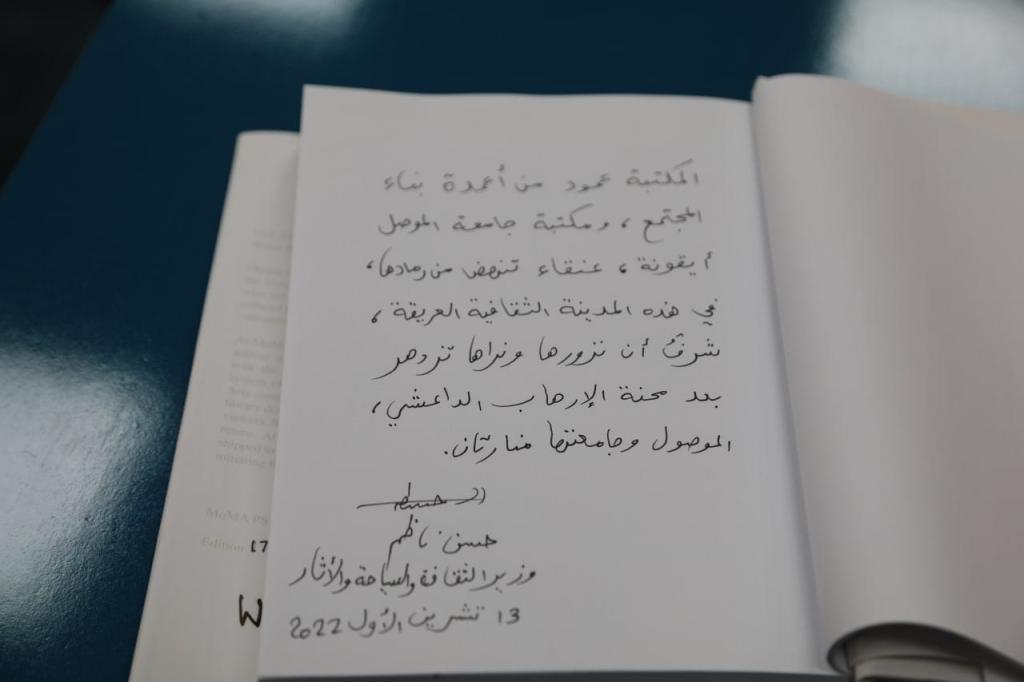 المكتبة عمود من أعمدة بناء
المجتمع، ومكتبة جامعة الموصل
أيقونة، عنقاء تنهض من رمادها،
في هذه المدينة الثقافية العريقة،
شرفٌ أن نزورها ونراها تزدهر
بعد محنة الإرهاب الداعشي،
الموصل وجامعتها منارتان.
حسن ناظم
وزير الثقافة والسياحة والآثار
13 تشرين الأول 2022
MoMA PS
Edition 17
W